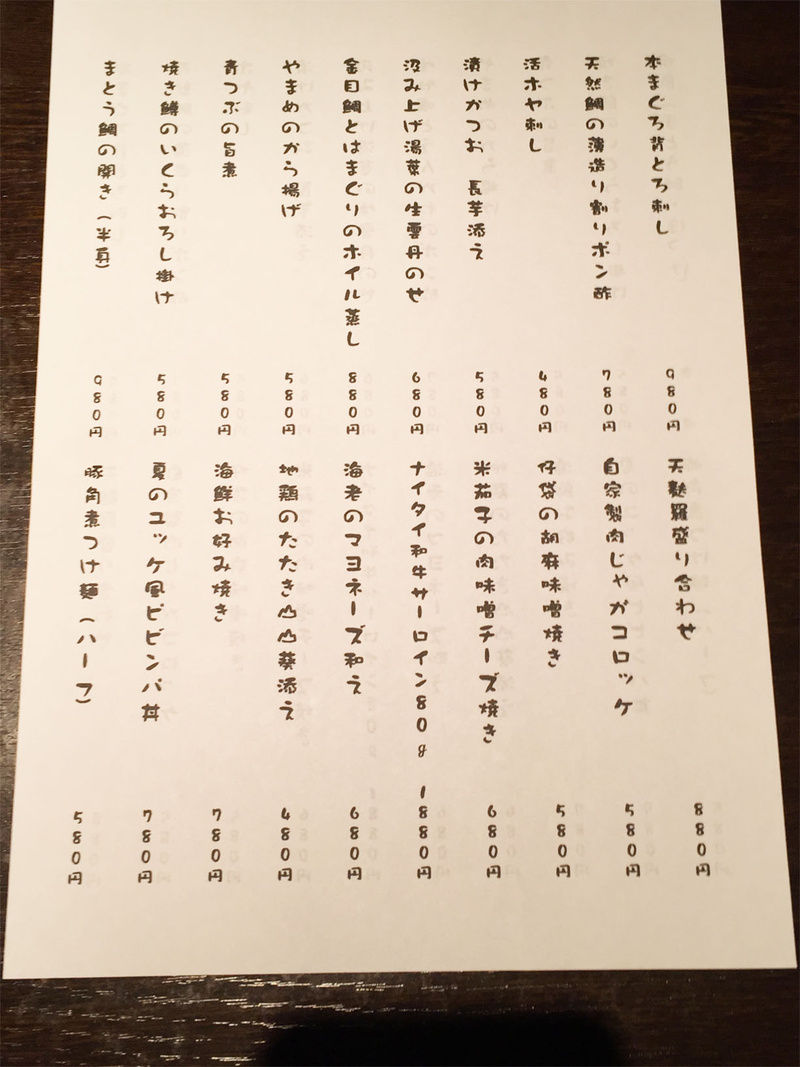 本まぐろ背とろ刺し 980円
天然鯛の薄造り割りポン酢 780円
活ホヤ刺し 480円
漬けかつお 長芋添え 580円
汲み上げ湯葉の生雲丹のせ 680円
金目鯛とはまぐりのホイル蒸し 880円
やまめのから揚げ 580円
青つぶの旨煮 580円
焼き鱒のいくらおろし掛け 580円
まとう鯛の開き（半真） 980円
天麩羅盛り合わせ 880円
自家製肉じゃがコロッケ 580円
仔袋の胡麻味噌焼き 580円
米茄子の肉味噌チーズ焼き 680円
ナイタイ和牛サーロイン80g 1880円
海老のマヨネーズ和え 680円
地鶏のたたき山山葵添え 480円
海鮮お好み焼き 780円
夏のユッケ風ビビンバ丼 780円
豚角煮つけ麺（ハーフ） 580円